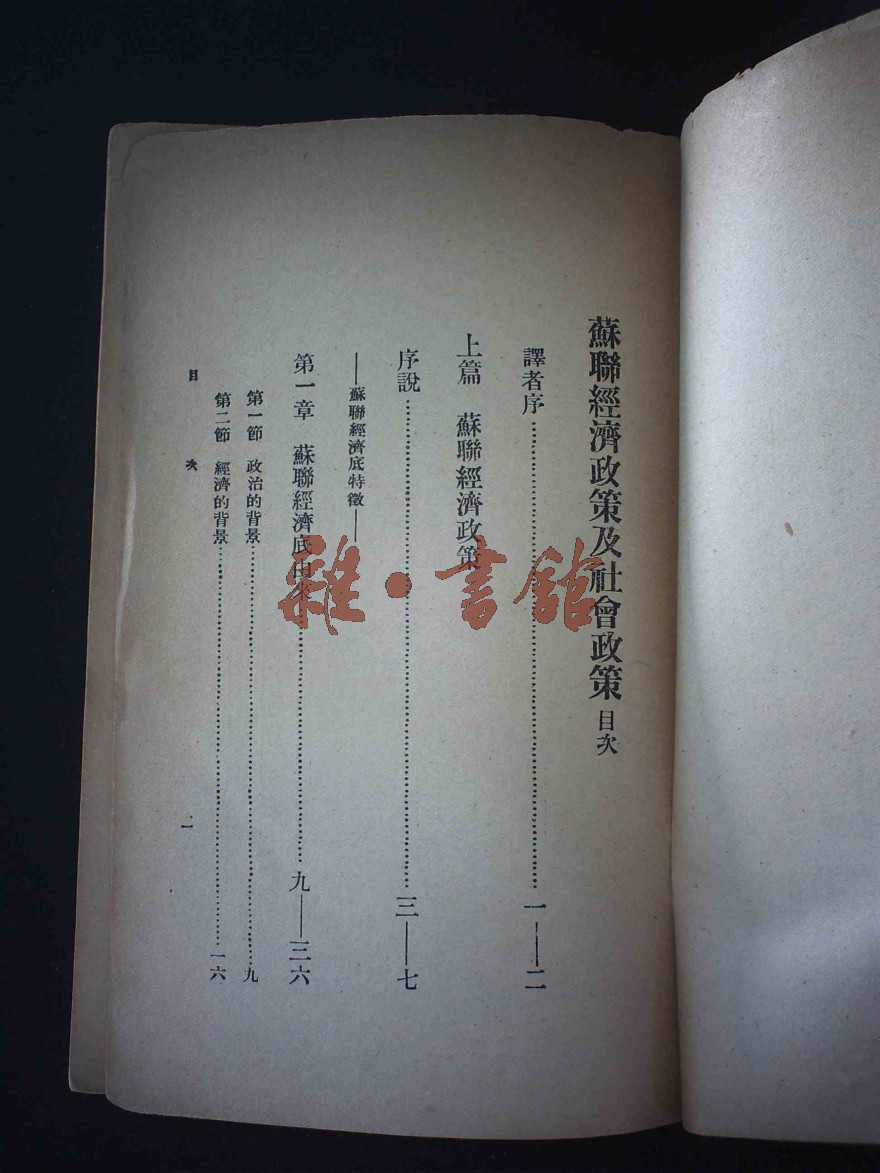 蘇聯經濟政策及社會政策 目次
譯者序……一——二
上篇 蘇聯經濟政策
序說……三——七
——蘇聯經濟底特徵——
第一章 蘇聯經濟底由來……九——三六
第一節 政治的背景……九
第二節 經濟的背景……一六
目次 一
雜·書館